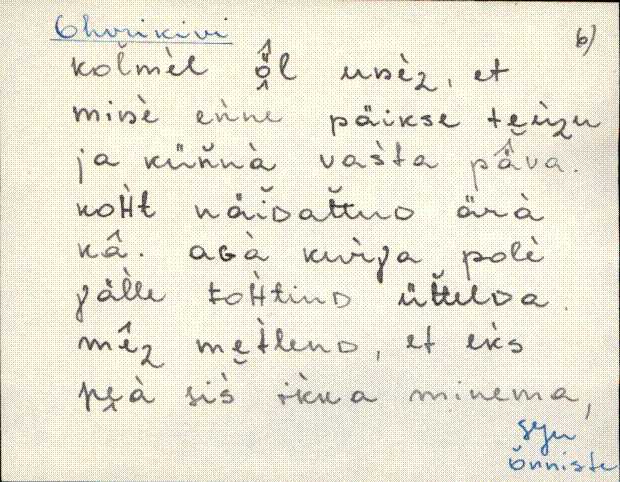 Ohvrikivi
6)
kol̆mèl ö̭̂l unèz, et
minè enne päikse tẹùzu
ja küňnà vašta pâ̭va.
koHt näĭDattuD ärà
kâ. aGà kuŕja polè
jälle toHtinD üttelDa.
mêz mẹ̀tlenD, et eks
pẹà siš ikka minema,
seju
õnniste